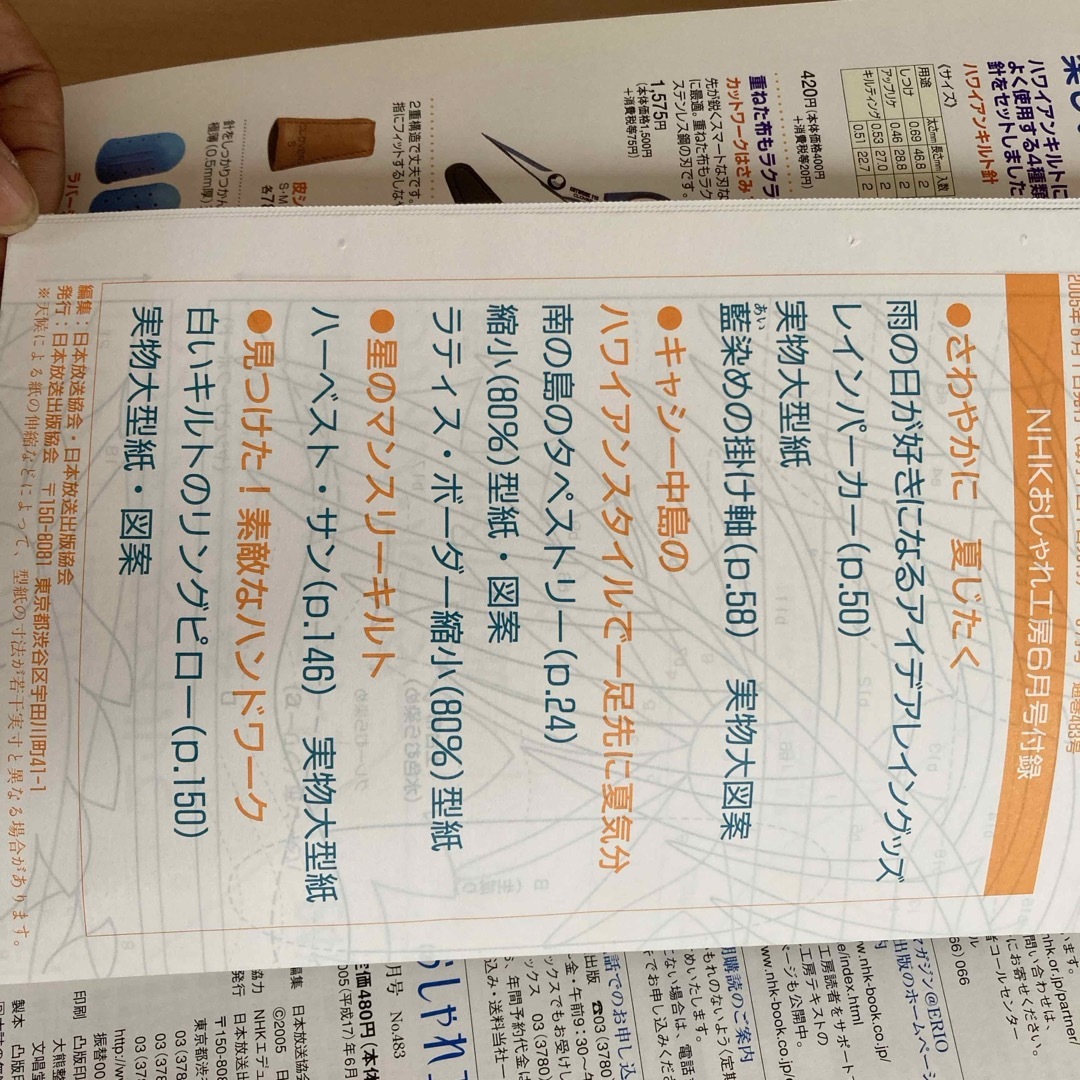 ハワイアンキルトに
よく使用する4種類
針をセットしました
ハワイアンキルト針
〈サイズ〉
用途 太さmm 長さmm 入数
しつけ 0.69 46.8 2
アップリケ 0.46 28.8 2
0.53 27.0 2
キルティング 0.51 22.7 2
420円(本体価格400円
+消費税等20円)
重ねた布もラクラ
カットワークはさみ
先が鋭くスマートな刃な
に最適。重ねた布もラク
ステンレス鋼の刃です。
1,575円
(本体価格1,500円
+消費税等75円)
2重構造で丈夫です。
指にフィットするしな
針をしっかりつかん
極薄(0.5mm厚)
通巻483号
NHKおしゃれ工房6月号付録
●さわやかに 夏じたく
雨の日が好きになるアイデアレイングッズ
レインパーカー(p.50)
実物大型紙
藍染めの掛け軸(p.58) 実物大図案
あい
●キャシー中島の
ハワイアンスタイルで一足先に夏気分
南の島のタペストリー(p.24)
縮小(80%)型紙・図案
ラティス・ボーダー縮小(80%)型紙
●星のマンスリーキルト
ハーベスト・サン(p.146) 実物大型紙
●見つけた！素敵なハンドワーク
白いキルトのリングピロー(p.150)
実物大型紙・図案
編集：日本放送協会・日本放送出版協会
発行：日本放送出版協会 〒150-8081 東京都渋谷区宇田川町41-1
※天候による紙の伸縮などによって、型紙の寸法が若干実寸と異なる場合があります。
います。
nhk.or.jp/partner/
問い合わせは、
にお寄せください。
者コールセンター
66)066
マガジン@ERIO
出版のホームページ
www.nhk-book.co.jp/
e/index.html
工房読者をサポート
工房テキストの
ページも公開中。
ww.nhk-book.co.jp
期購読のご案内
もれのないよう(定期
めいたします。
ごない場合は、電話
でお申し込みください
話でのお申し込
出版 ☎03(3780)
金・午前9:30〜午
ックスでもお受けし
ックス 03(3780)
、年間予約代金は
込み・送料当社一
おしゃれ工
月号 No.483
定価480円(本体
005(平成17)年6月
©2005 日本放送協
編集 日本放送協会
協力 NHKエデュ
発行 日本放送出
〒150-808
東京都渋
03(3
03(3
振替00
http://w
印刷 凸版印
大熊整
製本 凸版印
文唱堂